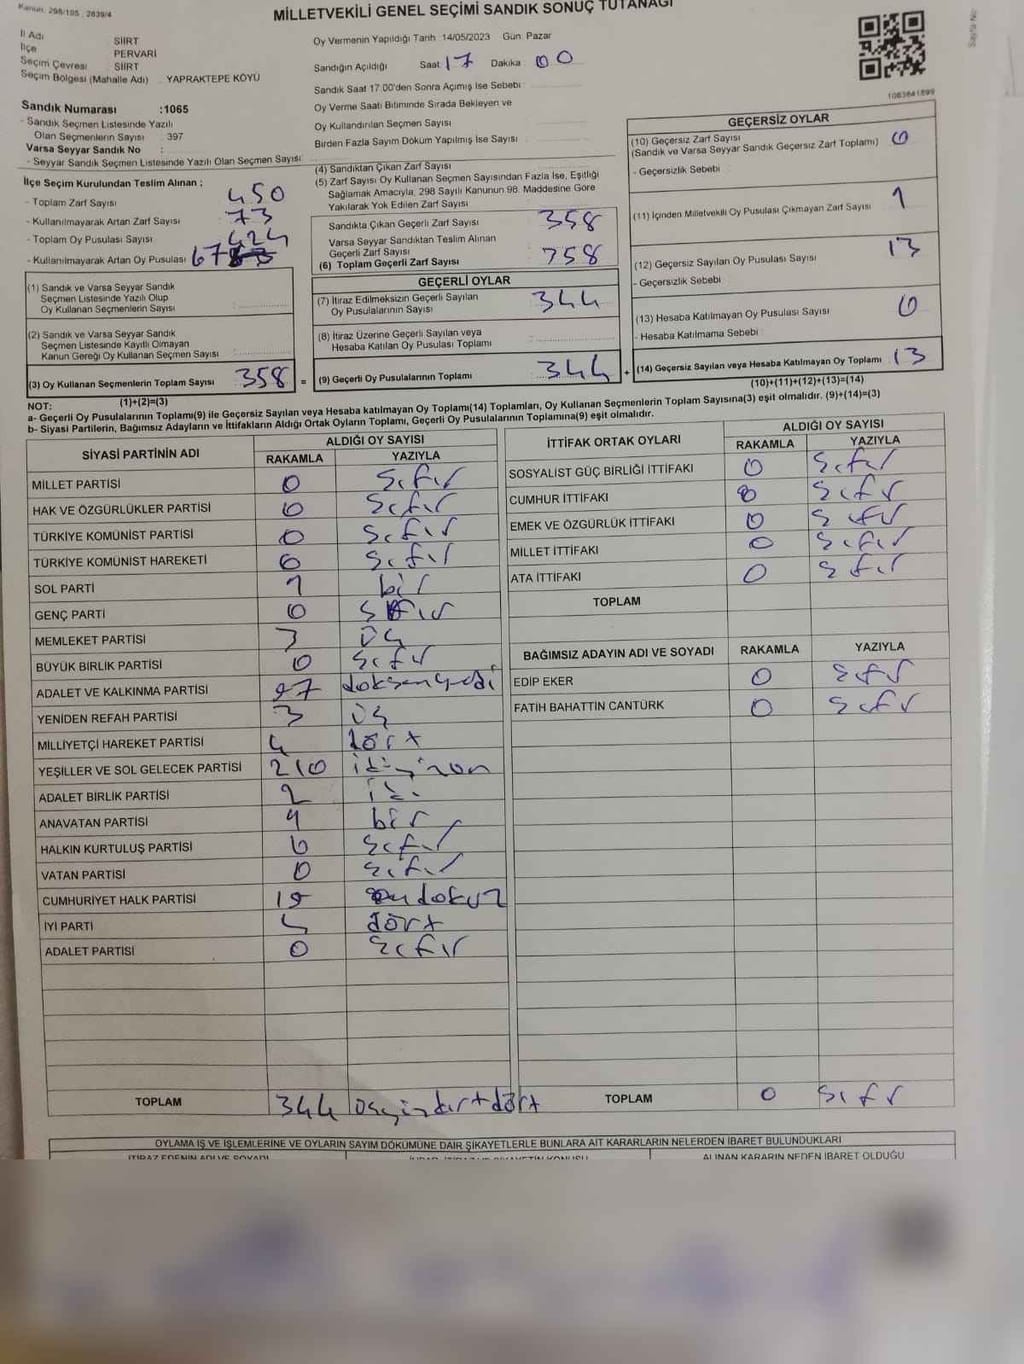 Kanun: 298/105, 2839/4
MİLLETVEKİLİ GENEL SEÇİMİ SANDIK SONUÇ TUTANAĞI
Sayfa No
İl Adı SİİRT
İlçe PERVARİ
Seçim Çevresi SİİRT
Seçim Bölgesi (Mahalle Adı) YAPRAKTEPE KÖYÜ
Sandık Numarası :1065
- Sandık Seçmen Listesinde Yazılı
Olan Seçmenlerin Sayısı 397
Varsa Seyyar Sandık No :
- Seyyar Sandık Seçmen Listesinde Yazılı Olan Seçmen Sayısı
İlçe Seçim Kurulundan Teslim Alınan :
- Toplam Zarf Sayısı 450
- Kullanılmayarak Artan Zarf Sayısı 73
- Toplam Oy Pusulası Sayısı 424
- Kullanılmayarak Artan Oy Pusulası 67
(1) Sandık ve Varsa Seyyar Sandık
Seçmen Listesinde Yazılı Olup
Oy Kullanan Seçmenlerin Sayısı
(2) Sandık ve Varsa Seyyar Sandık
Seçmen Listesinde Kayıtlı Olmayan
Kanun Gereği Oy Kullanan Seçmen Sayısı
(3) Oy Kullanan Seçmenlerin Toplam Sayısı 358 =
(1)+(2)=(3)
Oy Vermenin Yapıldığı Tarih 14/05/2023 Gün: Pazar
Sandığın Açıldığı Saat 17 Dakika 00
Sandık Saat 17:00'den Sonra Açımış İse Sebebi :
Oy Verme Saati Bitiminde Sırada Bekleyen ve
Oy Kullandırılan Seçmen Sayısı
Birden Fazla Sayım Döküm Yapılmış İse Sayısı :
(4) Sandıktan Çıkan Zarf Sayısı
(5) Zarf Sayısı Oy Kullanan Seçmen Sayısından Fazla İse, Eşitliği
Sağlamak Amacıyla, 298 Sayılı Kanunun 98. Maddesine Göre
Yakılarak Yok Edilen Zarf Sayısı
Sandıkta Çıkan Geçerli Zarf Sayısı 358
Varsa Seyyar Sandıktan Teslim Alınan
Geçerli Zarf Sayısı
(6) Toplam Geçerli Zarf Sayısı 758
GEÇERLİ OYLAR
(7) İtiraz Edilmeksizin Geçerli Sayılan
Oy Pusulalarının Sayısı 344
(8) İtiraz Üzerine Geçerli Sayılan veya
Hesaba Katılan Oy Pusulası Toplamı
(9) Geçerli Oy Pusulalarının Toplamı 344 +
1063641899
GEÇERSİZ OYLAR
(10) Geçersiz Zarf Sayısı 0
(Sandık ve Varsa Seyyar Sandık Geçersiz Zarf Toplamı)
- Geçersizlik Sebebi
(11) İçinden Milletvekili Oy Pusulası Çıkmayan Zarf Sayısı 1
(12) Geçersiz Sayılan Oy Pusulası Sayısı 13
- Geçersizlik Sebebi
(13) Hesaba Katılmayan Oy Pusulası Sayısı 0
- Hesaba Katılmama Sebebi
(14) Geçersiz Sayılan veya Hesaba Katılmayan Oy Toplamı 13
(10)+(11)+(12)+(13)=(14)
NOT:
a- Geçerli Oy Pusulalarının Toplamı(9) ile Geçersiz Sayılan veya Hesaba katılmayan Oy Toplamı(14) Toplamları, Oy Kullanan Seçmenlerin Toplam Sayısına(3) eşit olmalıdır. (9)+(14)=(3)
b- Siyasi Partilerin, Bağımsız Adayların ve İttifakların Aldığı Ortak Oyların Toplamı, Geçerli Oy Pusulalarının Toplamına(9) eşit olmalıdır.
SİYASİ PARTİNİN ADI ALDIĞI OY SAYISI
RAKAMLA YAZIYLA
MİLLET PARTİSİ 0 Sıfır
HAK VE ÖZGÜRLÜKLER PARTİSİ 0 Sıfır
TÜRKİYE KOMÜNİST PARTİSİ 0 Sıfır
TÜRKİYE KOMÜNİST HAREKETİ 0 Sıfır
SOL PARTİ 1 bir
GENÇ PARTİ 0 Sıfır
MEMLEKET PARTİSİ 3 üç
BÜYÜK BİRLİK PARTİSİ 0 Sıfır
ADALET VE KALKINMA PARTİSİ 97 doksanyedi
YENİDEN REFAH PARTİSİ 3 üç
MİLLİYETÇİ HAREKET PARTİSİ 4 dört
YEŞİLLER VE SOL GELECEK PARTİSİ 210 ikiyüzon
ADALET BİRLİK PARTİSİ 2 iki
ANAVATAN PARTİSİ 1 bir
HALKIN KURTULUŞ PARTİSİ 0 Sıfır
VATAN PARTİSİ 0 Sıfır
CUMHURİYET HALK PARTİSİ 19 ondokuz
İYİ PARTİ 4 dört
ADALET PARTİSİ 0 Sıfır
TOPLAM 344 üçyüzkırkdört
İTTİFAK ORTAK OYLARI ALDIĞI OY SAYISI
RAKAMLA YAZIYLA
SOSYALİST GÜÇ BİRLİĞİ İTTİFAKI 0 Sıfır
CUMHUR İTTİFAKI 0 Sıfır
EMEK VE ÖZGÜRLÜK İTTİFAKI 0 Sıfır
MİLLET İTTİFAKI 0 Sıfır
ATA İTTİFAKI 0 Sıfır
TOPLAM
BAĞIMSIZ ADAYIN ADI VE SOYADI RAKAMLA YAZIYLA
EDİP EKER 0 Sıfır
FATİH BAHATTİN CANTÜRK 0 Sıfır
TOPLAM 0 Sıfır
OYLAMA İŞ VE İŞLEMLERİNE VE OYLARIN SAYIM DÖKÜMÜNE DAİR ŞİKAYETLERLE BUNLARA AİT KARARLARIN NELERDEN İBARET BULUNDUKLARI
İTİRAZ EDENİN ADI VE SOYADI
ALINAN KARARIN NEDEN İBARET OLDUĞU